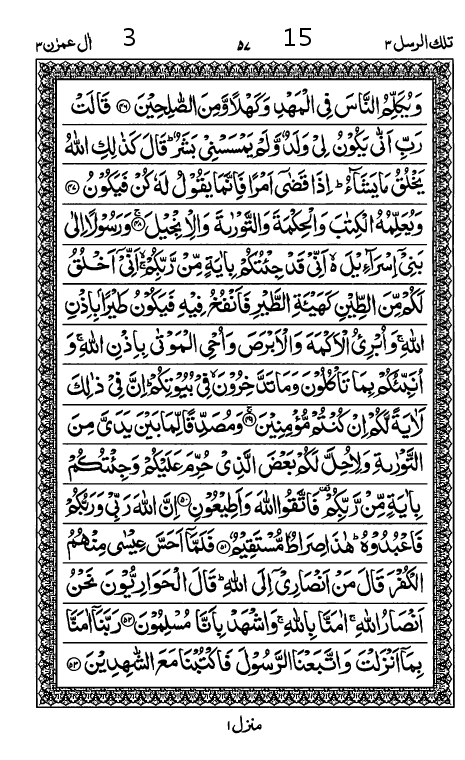 تلك الرسل ٣ 15 ٥٧ 3 اٰل عمرٰن ٣
وَيُكَلِّمُ النَّاسَ فِى الْمَهْدِ وَكَهْلًا وَّمِنَ الصّٰلِحِيْنَ ﴿٤٦﴾ قَالَتْ
رَبِّ اَنّٰى يَكُوْنُ لِىْ وَلَدٌ وَّلَمْ يَمْسَسْنِىْ بَشَرٌ ؕ قَالَ كَذٰلِكِ اللّٰهُ
يَخْلُقُ مَا يَشَآءُ ؕ اِذَا قَضٰٓى اَمْرًا فَاِنَّمَا يَقُوْلُ لَهٗ كُنْ فَيَكُوْنُ ﴿٤٧﴾
وَيُعَلِّمُهُ الْكِتٰبَ وَالْحِكْمَةَ وَالتَّوْرٰىةَ وَالْاِنْجِيْلَ ۚ ﴿٤٨﴾ وَرَسُوْلًا اِلٰى
بَنِىْٓ اِسْرَآءِيْلَ ۙ۬ اَنِّىْ قَدْ جِئْتُكُمْ بِاٰيَةٍ مِّنْ رَّبِّكُمْ ۙ اَنِّىْٓ اَخْلُقُ
لَكُمْ مِّنَ الطِّيْنِ كَهَيْئَةِ الطَّيْرِ فَاَنْفُخُ فِيْهِ فَيَكُوْنُ طَيْرًا بِاِذْنِ
اللّٰهِ ۚ وَاُبْرِئُ الْاَكْمَهَ وَالْاَبْرَصَ وَاُحْىِ الْمَوْتٰى بِاِذْنِ اللّٰهِ ۚ وَ
اُنَبِّئُكُمْ بِمَا تَاْكُلُوْنَ وَمَا تَدَّخِرُوْنَ ۙ فِىْ بُيُوْتِكُمْ ؕ اِنَّ فِىْ ذٰلِكَ
لَاٰيَةً لَّكُمْ اِنْ كُنْتُمْ مُّؤْمِنِيْنَ ۚ ﴿٤٩﴾ وَمُصَدِّقًا لِّمَا بَيْنَ يَدَىَّ مِنَ
التَّوْرٰىةِ وَلِاُحِلَّ لَكُمْ بَعْضَ الَّذِىْ حُرِّمَ عَلَيْكُمْ وَجِئْتُكُمْ
بِاٰيَةٍ مِّنْ رَّبِّكُمْ ۗ فَاتَّقُوا اللّٰهَ وَاَطِيْعُوْنِ ﴿٥٠﴾ اِنَّ اللّٰهَ رَبِّىْ وَرَبُّكُمْ
فَاعْبُدُوْهُ ؕ هٰذَا صِرَاطٌ مُّسْتَقِيْمٌ ﴿٥١﴾ فَلَمَّآ اَحَسَّ عِيْسٰى مِنْهُمُ
الْكُفْرَ قَالَ مَنْ اَنْصَارِىْٓ اِلَى اللّٰهِ ؕ قَالَ الْحَوَارِيُّوْنَ نَحْنُ
اَنْصَارُ اللّٰهِ ۚ اٰمَنَّا بِاللّٰهِ ۚ وَاشْهَدْ بِاَنَّا مُسْلِمُوْنَ ﴿٥٢﴾ رَبَّنَآ اٰمَنَّا
بِمَآ اَنْزَلْتَ وَاتَّبَعْنَا الرَّسُوْلَ فَاكْتُبْنَا مَعَ الشّٰهِدِيْنَ ﴿٥٣﴾
منزل ١